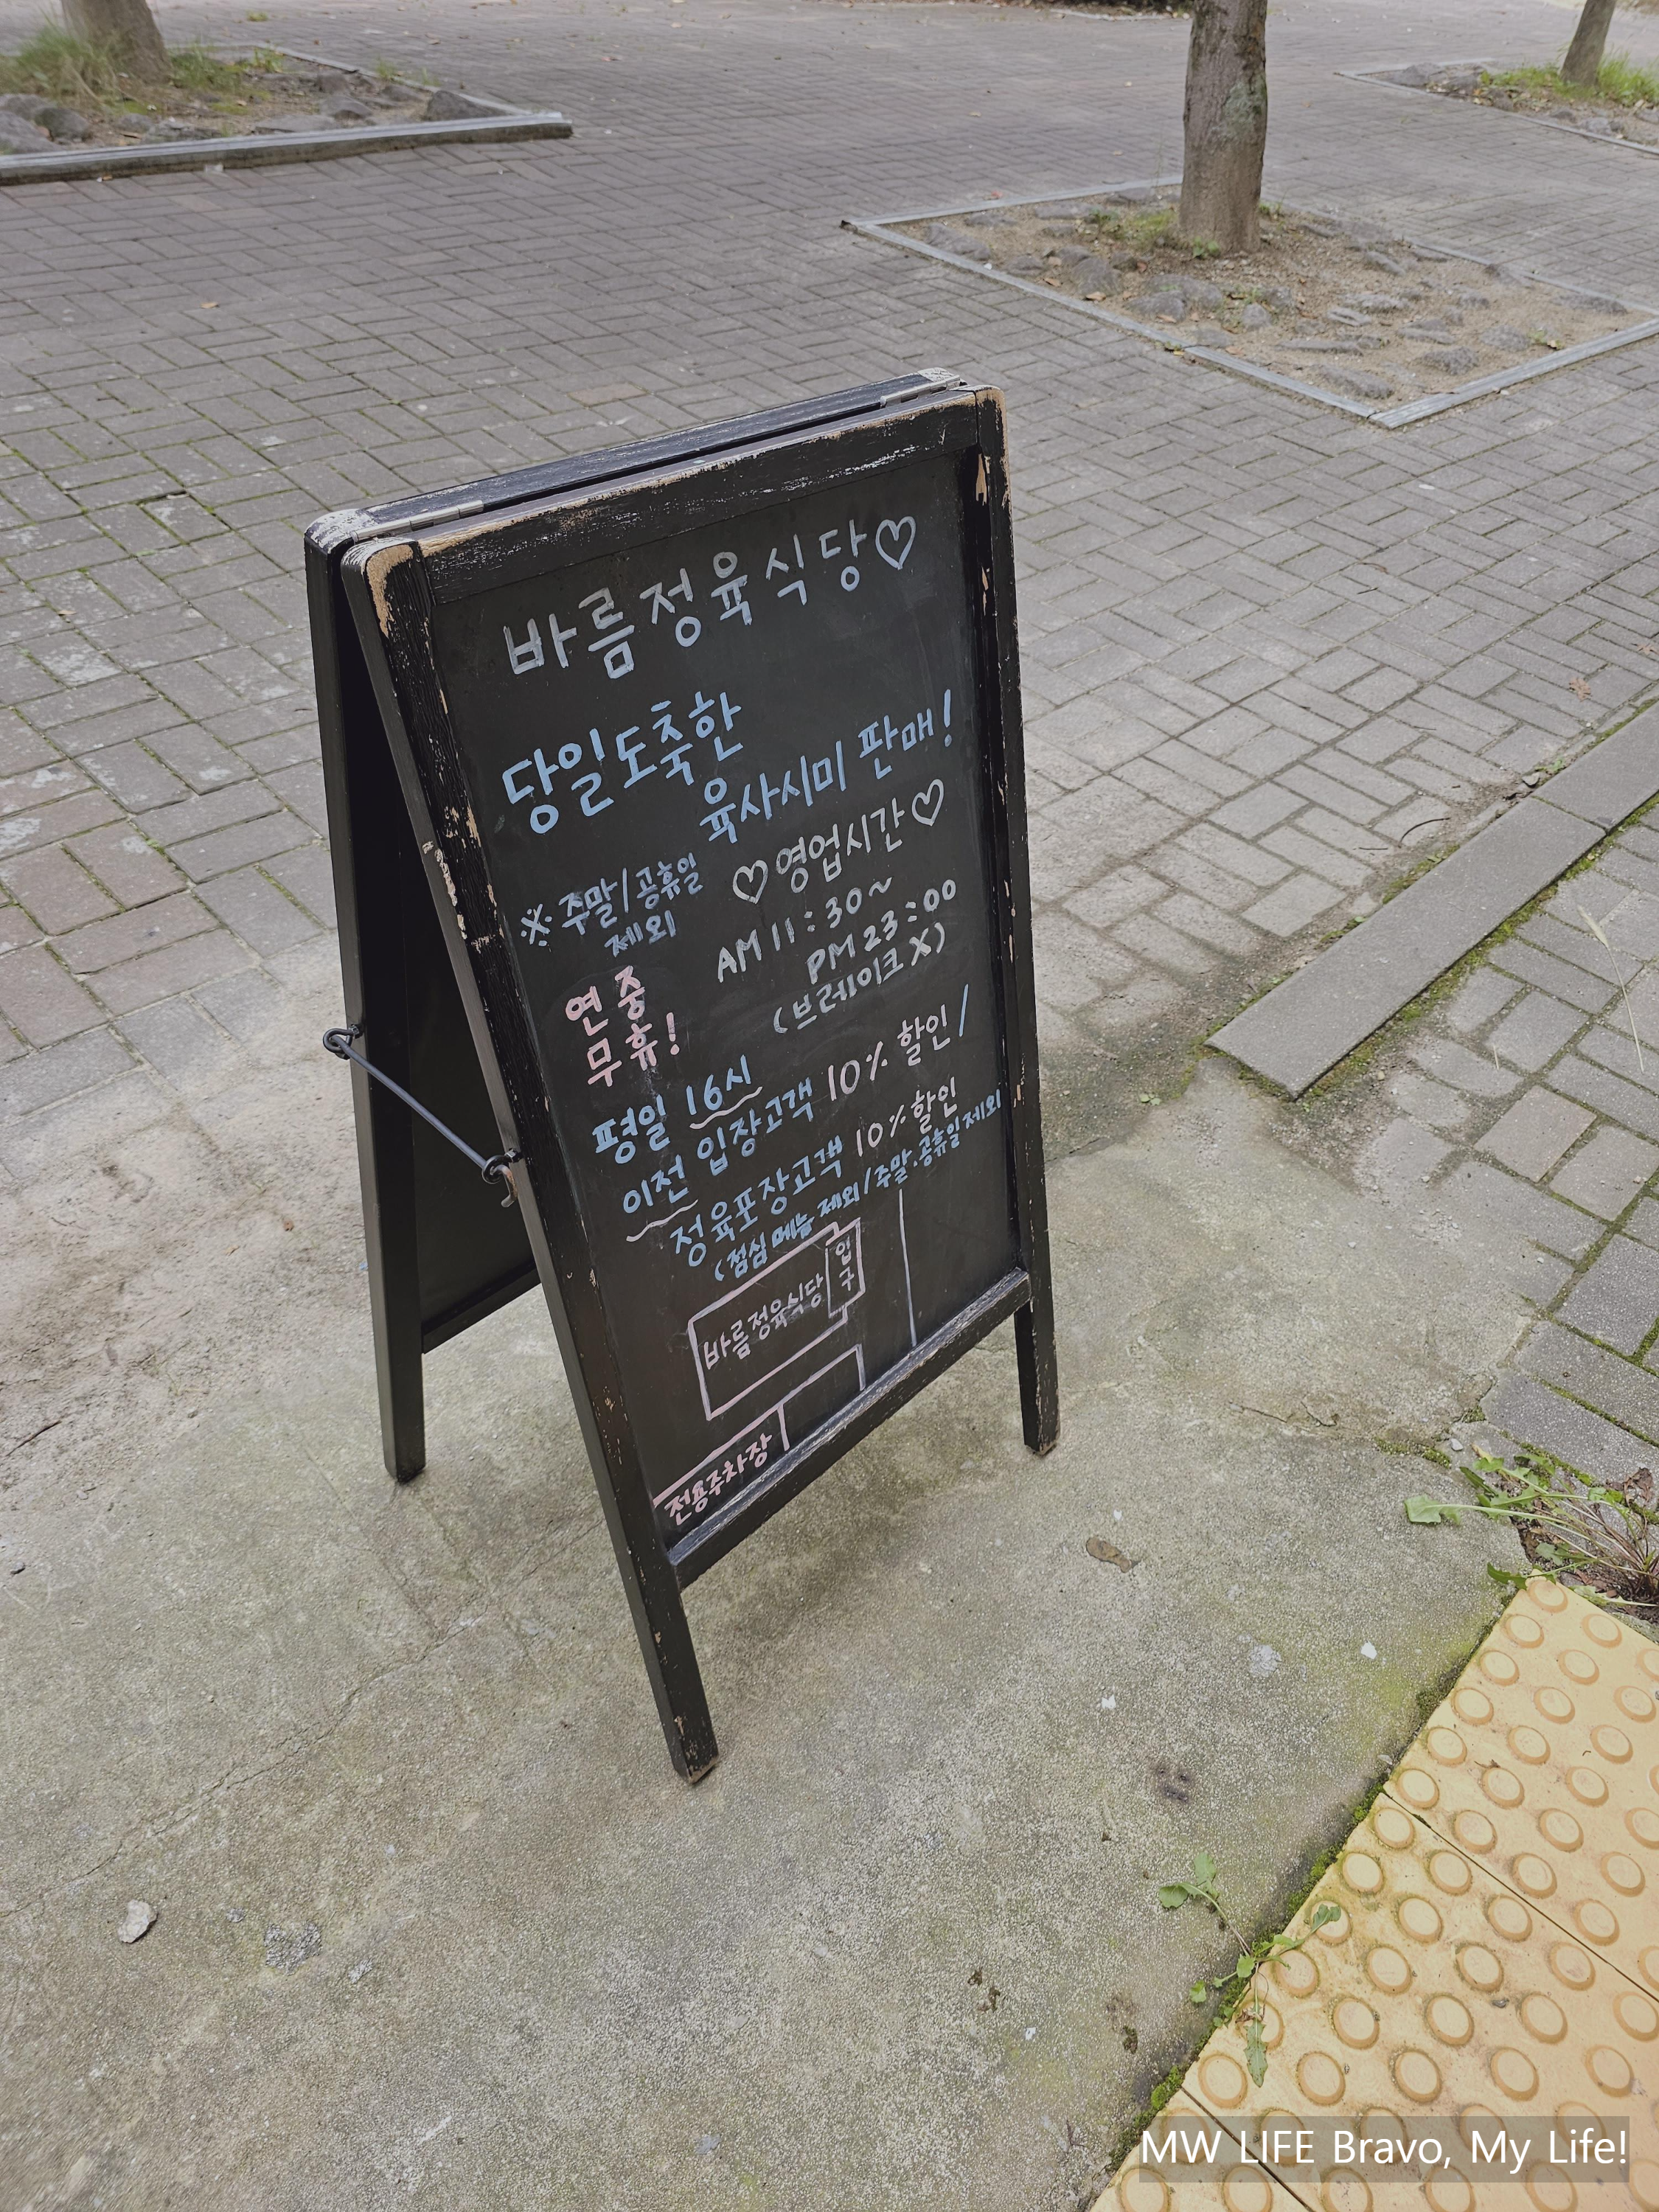 바름정육식당♡
당일도축한
육사시미 판매!
※ 주말/공휴일
제외
♡영업시간♡
AM 11:30~
PM 23:00
(브레이크X)
연중
무휴!
평일 16시
이전 입장고객 10% 할인/
정육포장고객 10% 할인
(점심 메뉴 제외/주말.공휴일 제외
바름정육식당
입구
전용주차장
MW LIFE Bravo, My Life!